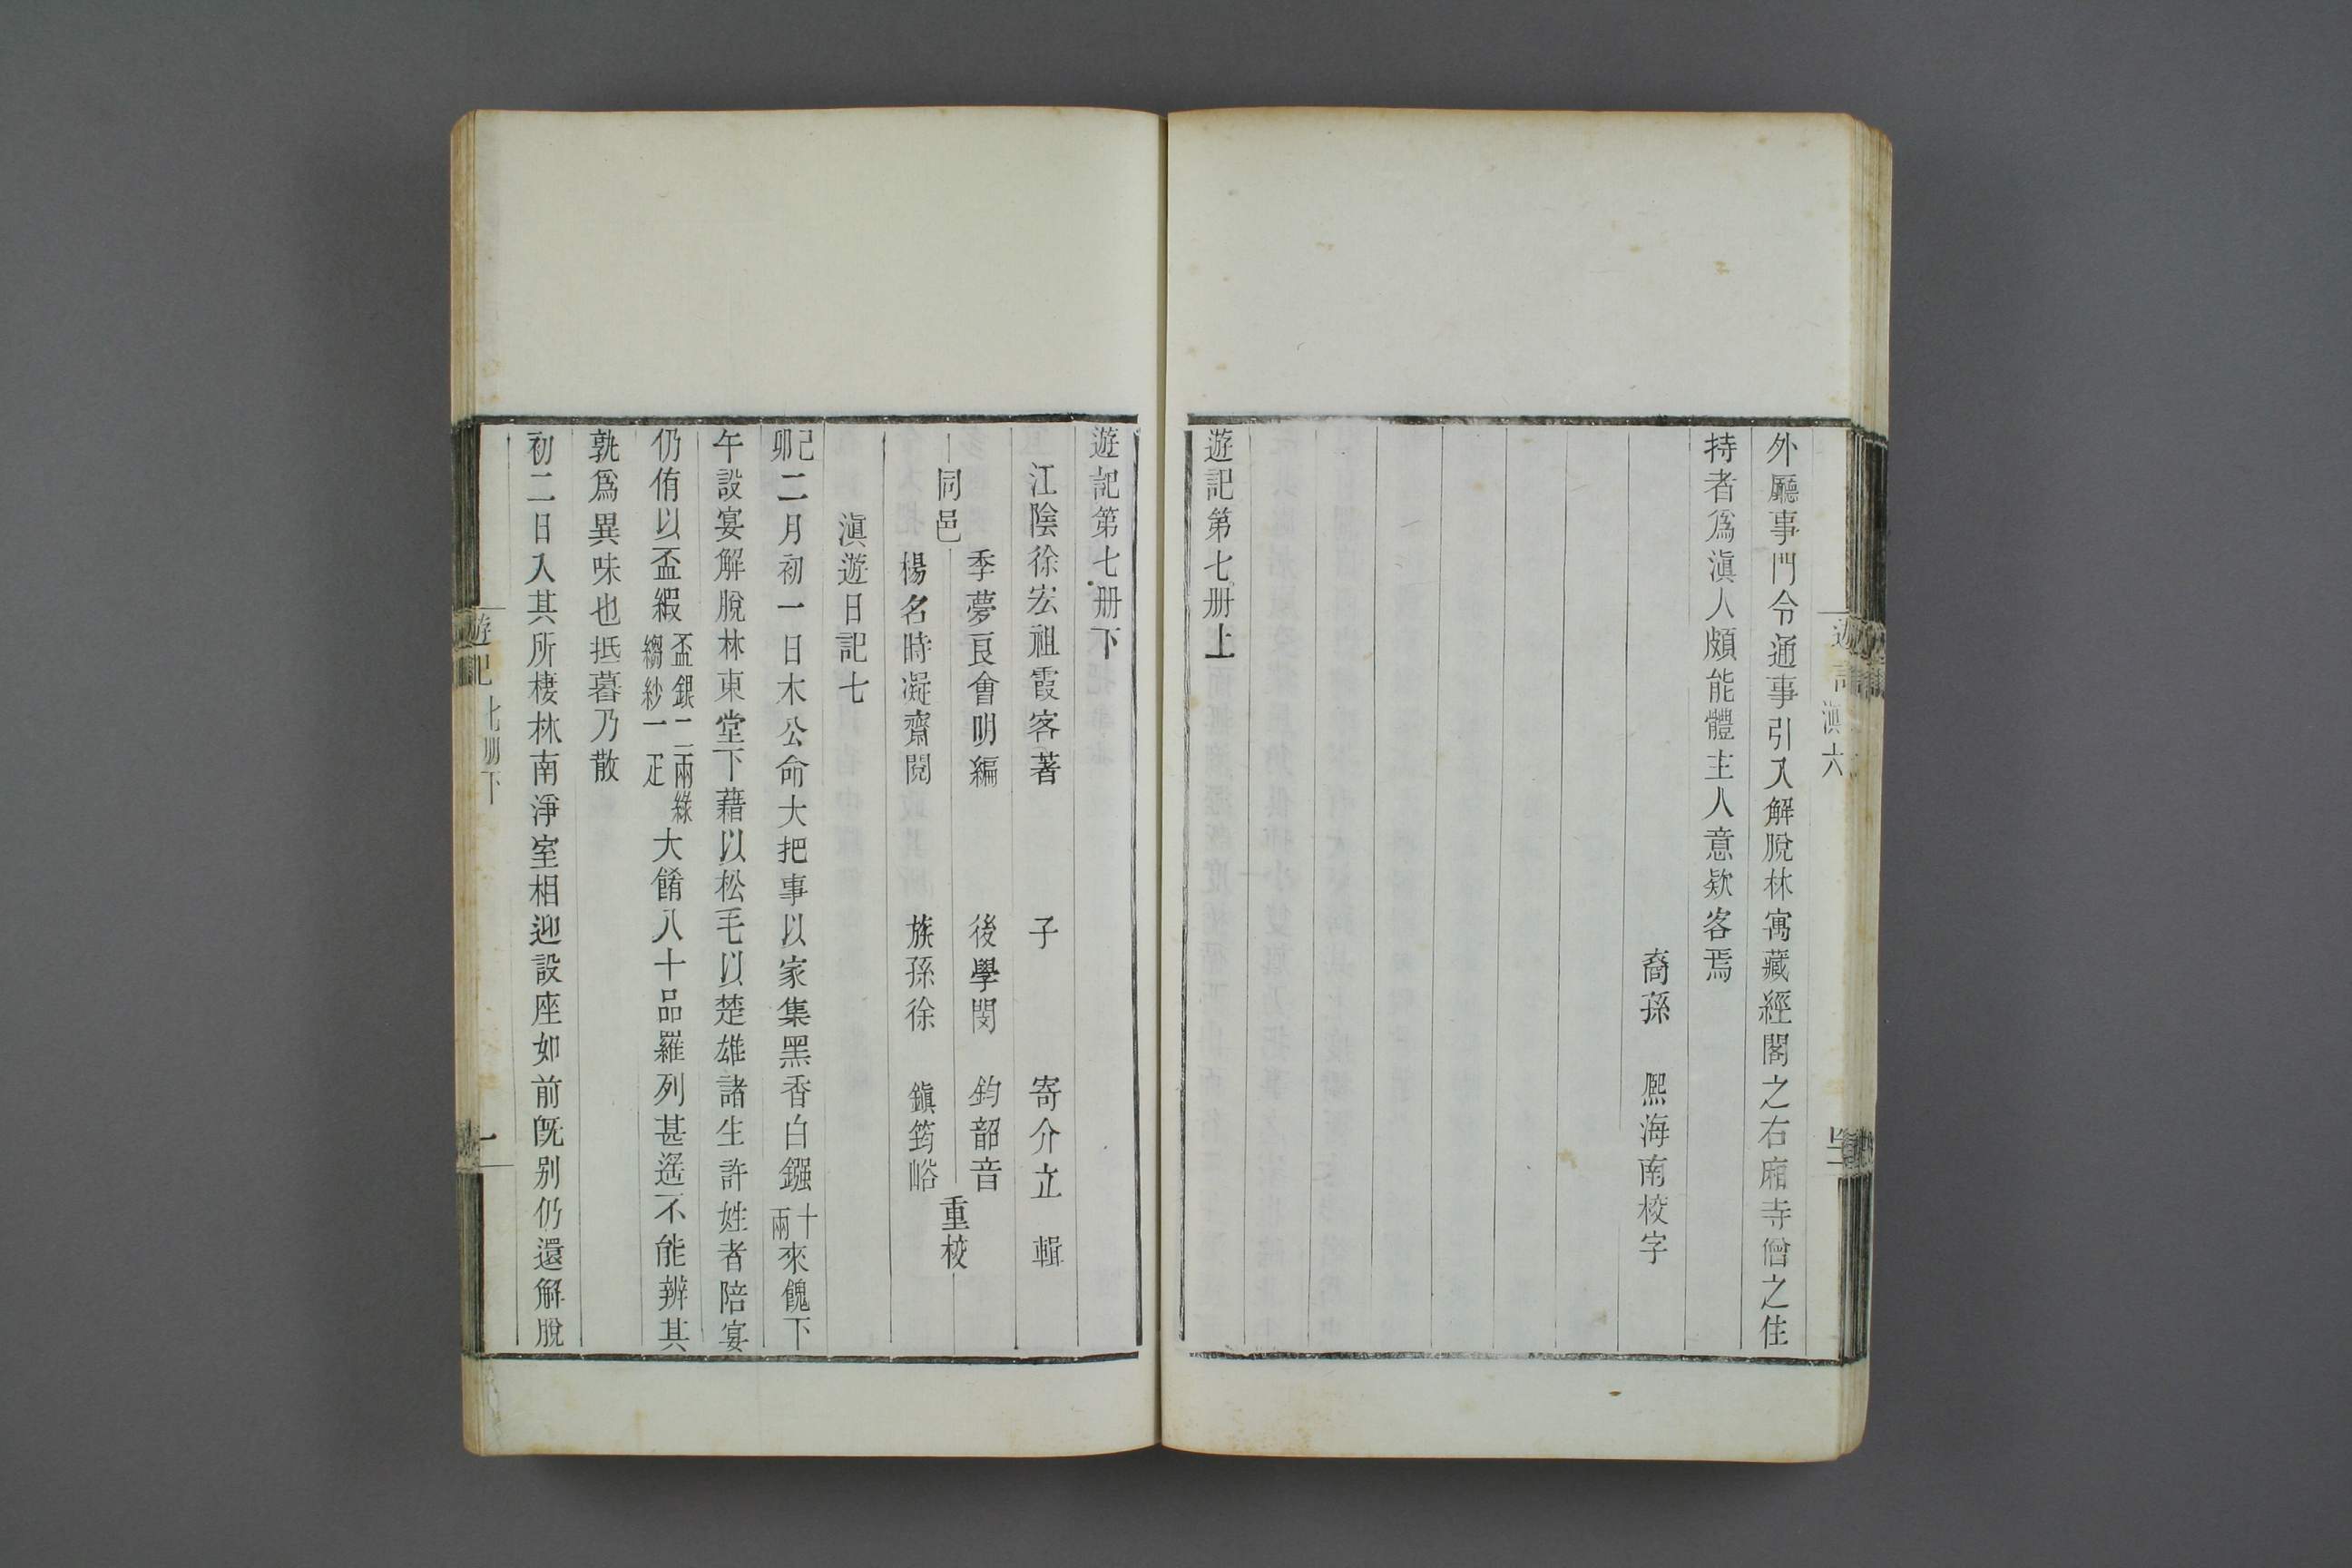 外廳事門令通事引入解脫林寓藏經閣之右廂寺僧之住
持者爲滇人頗能體主人意欵客焉
裔孫 熈海南校字
遊記第七册上
滇六
遊記第七册下
江陰徐宏祖霞客著 子 寄介立 輯
同邑
季夢良會明編 後學閔 鈞韶音
楊名時凝齋閱 族孫徐 鎭筠峪
重校
滇遊日記七
己卯二月初一日木公命大把事以家集黑香白鏹十兩來餽下
午設宴解脫林東堂下藉以松毛以楚雄諸生許姓者陪宴
仍侑以盃緞盃銀二兩綠縐紗一疋大餚八十品羅列甚遙不能辨其
孰爲異味也抵暮乃散
初二日入其所棲林南淨室相迎設座如前旣别仍還解脫
遊記 七册下 一